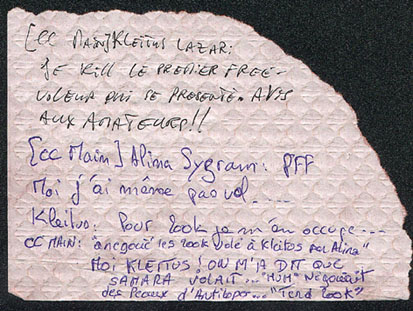 [CC MAIN] KLEITUS LAZAR:
JE KILL LE PREMIER FREE-
VOLEUR QUI SE PRESENTE. AVIS
AUX AMATEURS!!
[CC Main] Alina Sygram: PFF
Moi j'ai même pas vol....
Kleitus: Pour 200k je m'en occupe...
CC MAIN: "a négocié les 200k volé à Kleitos par Alina"
MOI KLEITUS! ON M'A DIT QUE
SAMARA VOLAIT... "HUM" Négociait
des Peaux d'Antilopes... "Tend 200k"